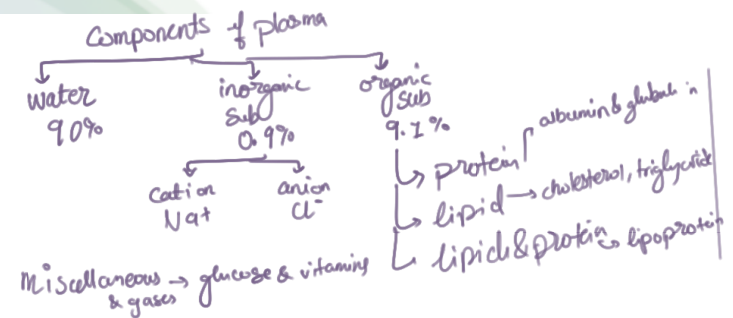 Components of plasma
water
90%
inorganic
Sub
0.9%
organic
sub
9.1%
Cation
Na+
anion
Cl-
protein albumin & globulin
lipid → cholesterol, triglyceride
lipid & protein → lipoprotein
Miscellaneous → glucose & vitamins
& gases